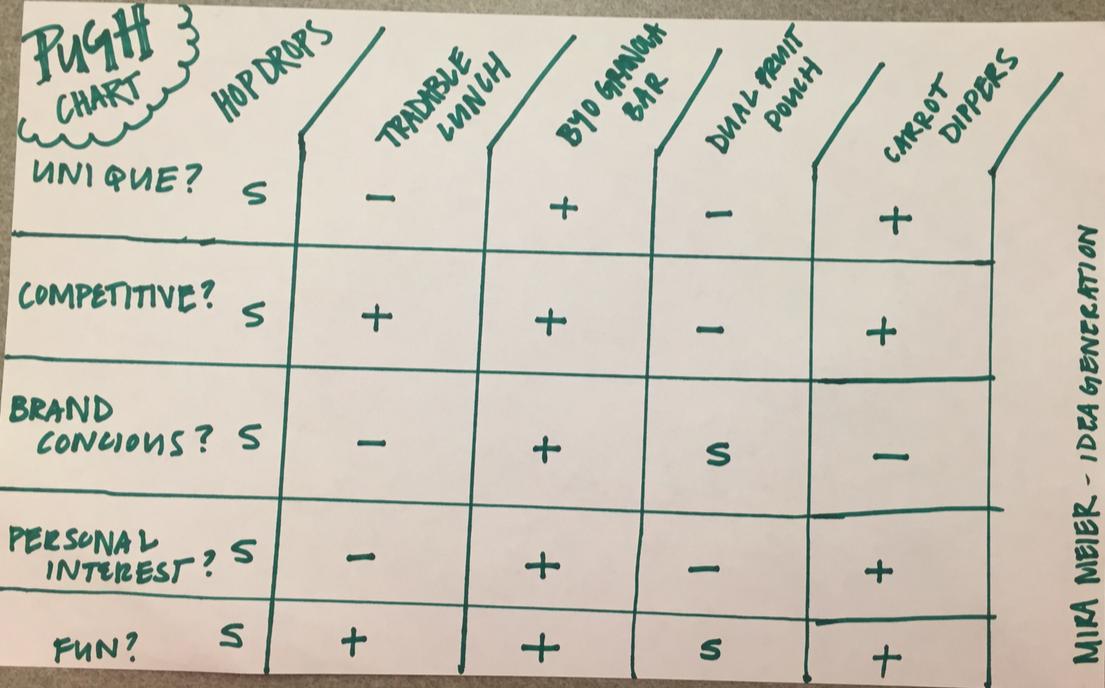 PUGH
CHART
HOP DROPS
TRADABLE
LUNCH
BYO GRANOLA
BAR
DUAL FRUIT
POUCH
CARROT
DIPPERS
UNIQUE? S - + - +
COMPETITIVE? S + + - +
BRAND
CONCIOUS? S - + S -
PERSONAL
INTEREST? S - + - +
FUN? S + + S +
MIRA MEIER - IDEA GENERATION